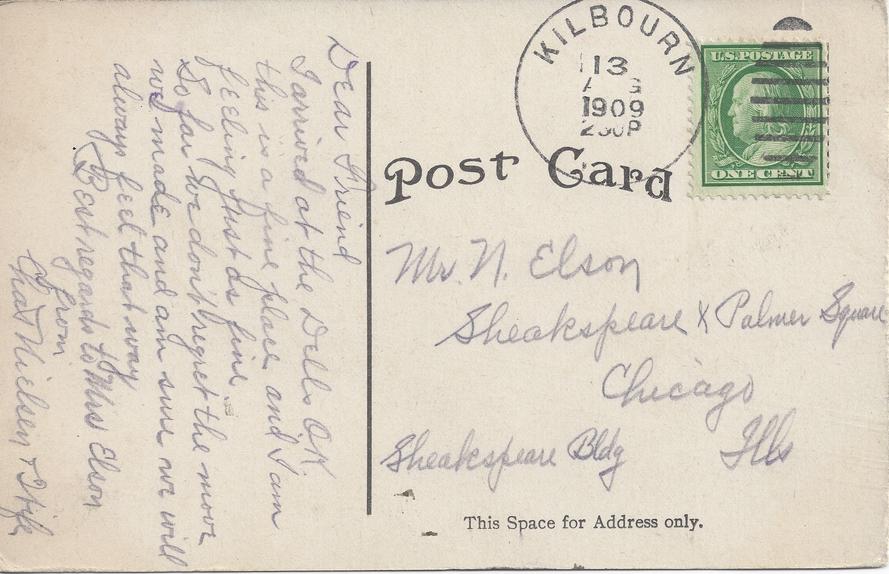 Dear Friend
I arrived at the Dells OK
this is a fine place and I am
feeling just as fine.
So far we don't regret the moov
we made and am sure we will
always feel that way
Best regards to Mrs Elson
from
Chas Nielsen & Wife
KILBOURN
13
1909
230P
U.S. POSTAGE
ONE CENT
Post Card
Mr. N. Elson
Sheakspeare & Palmer Square
Chicago
Sheakspeare Bldg Ills
This Space for Address only.